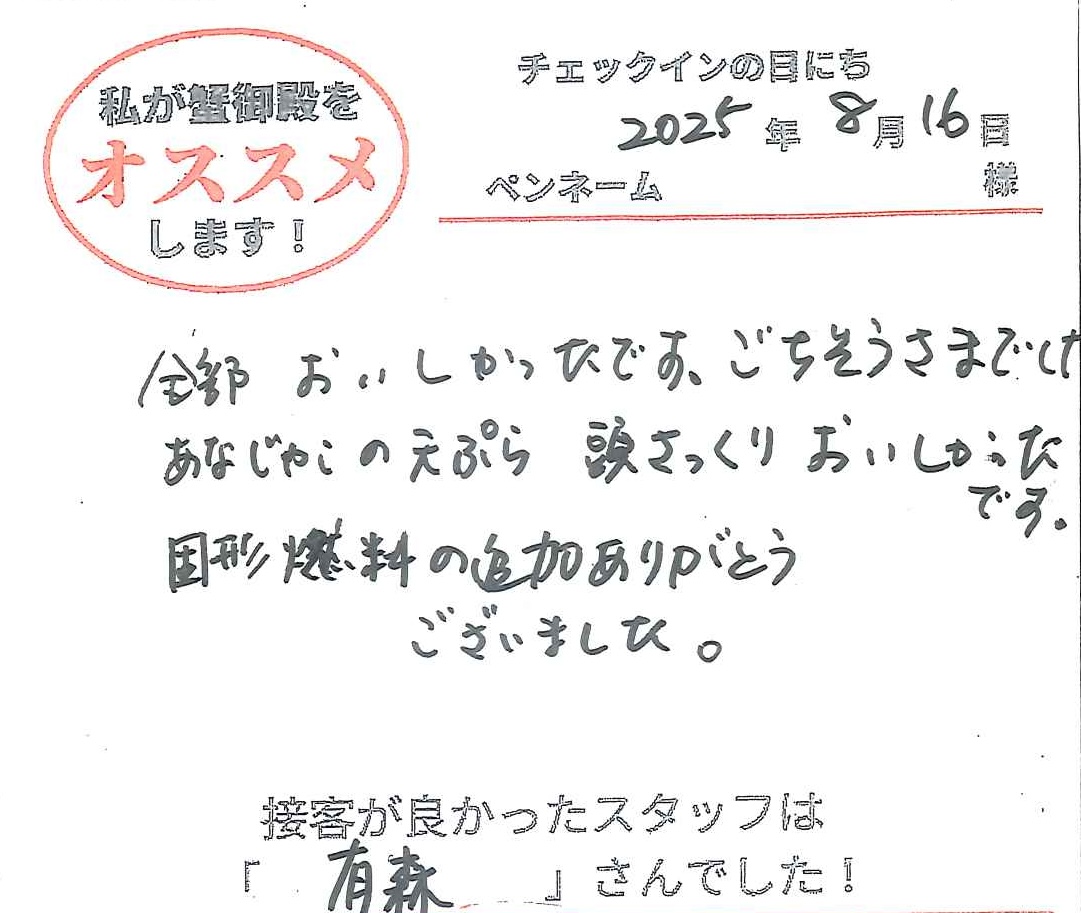 私が蟹御殿を
オススメ
します！
チェックインの日にち
2025年 8月16日
ペンネーム 様
全部 おいしかったです。ごちそうさまでした
あなじゃこの天ぷら 頭さっくり おいしかった
です。
固形燃料の追加ありがとう
ございました。
接客が良かったスタッフは
「 有森 」さんでした！